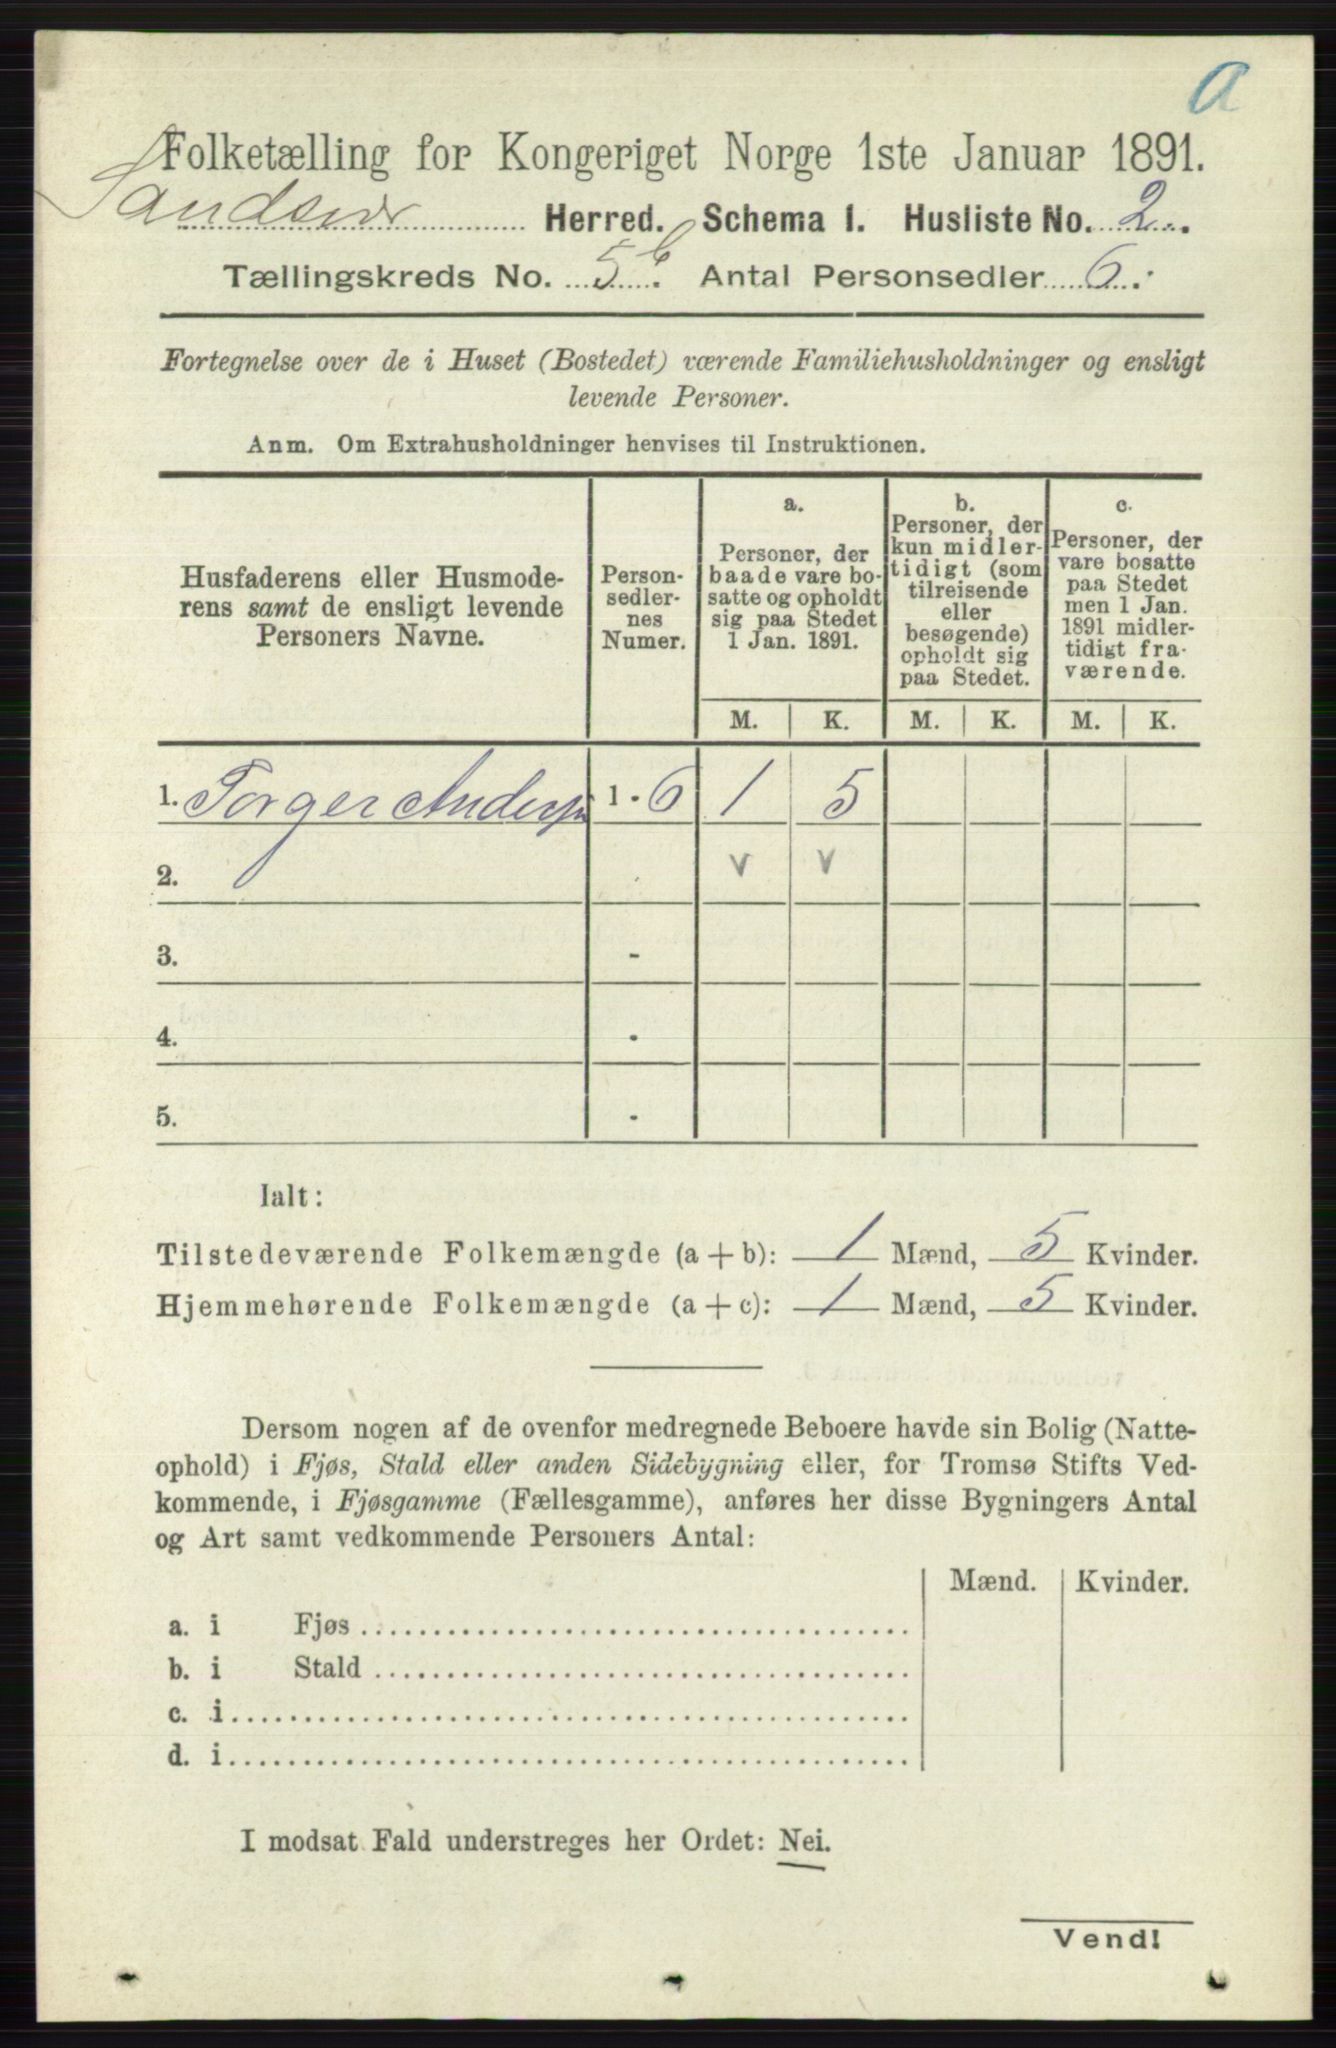 a
Folketælling for Kongeriget Norge 1ste Januar 1891.
Sandsvær Herred. Schema 1. Husliste No. 2.
Tællingskreds No. 5 b. Antal Personsedler 6.
Fortegnelse over de i Huset (Bostedet) værende Familiehusholdninger og ensligt
levende Personer.
Anm. Om Extrahusholdninger henvises til Instruktionen.
Husfaderens eller Husmode-
rens samt de ensligt levende
Personers Navne.
Person-
sedler-
nes
Numer.
a.
Personer, der
baade vare bo-
satte og opholdt
sig paa Stedet
1 Jan. 1891.
b.
Personer, der
kun midler-
tidigt (som
tilreisende
eller
besøgende)
opholdt sig
paa Stedet.
c.
Personer, der
vare bosatte
paa Stedet
men 1 Jan.
1891 midler-
tidigt fra-
værende.
M. K. M. K. M. K.
1. Torger Andersen 1 - 6 1 5
2. v v
3. -
4. -
5. -
Ialt:
Tilstedeværende Folkemængde (a + b): 1 Mænd, 5 Kvinder.
Hjemmehørende Folkemængde (a + c): 1 Mænd, 5 Kvinder.
Dersom nogen af de ovenfor medregnede Beboere havde sin Bolig (Natte-
ophold) i Fjøs, Stald eller anden Sidebygning eller, for Tromsø Stifts Ved-
kommende, i Fjøsgamme (Fællesgamme), anføres her disse Bygningers Antal
og Art samt vedkommende Personers Antal:
Mænd. Kvinder.
a. i Fjøs
b. i Stald
c. i
d. i
I modsat Fald understreges her Ordet: Nei.
Vend!